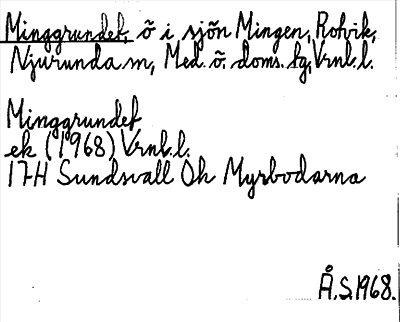 Minggrundet, ö i sjön Mingen, Rotvik,
Njurunda sn, Med. ö. doms. fg, Vrnl. l.
Minggrundet
ek (1968) Vrnl. l.
17H Sundsvall Ök Myrbodarna
Å.S. 1968.